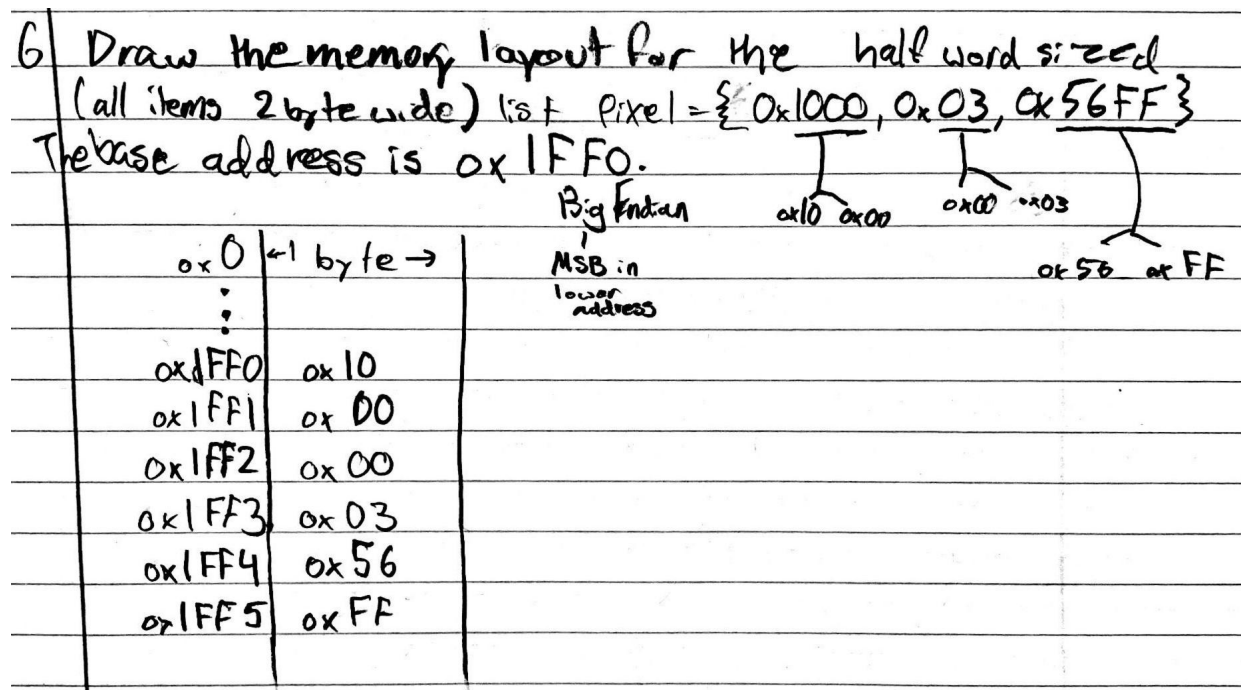 6 Draw the memory layout for the half word sized
(all items 2 byte wide) list Pixel = { 0x1000, 0x03, 0x56FF }
The base address is 0x1FF0.
Big Endian
MSB in
lower
address
0x10 0x00
0x00 0x03
0x56 0xFF
0x0 ←1 byte→
0x1FF0 0x10
0x1FF1 0x00
0x1FF2 0x00
0x1FF3 0x03
0x1FF4 0x56
0x1FF5 0xFF